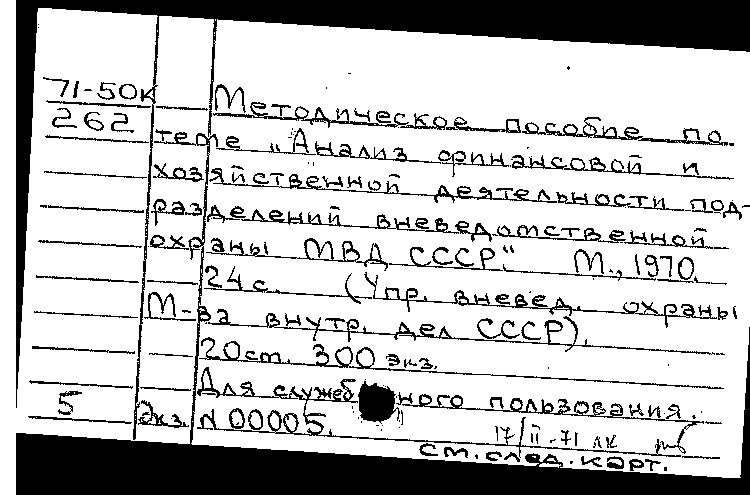 71-50к Методическое пособие по
262 теме „Анализ финансовой и
хозяйственной деятельности под-
разделений вневедомственной
охраны МВД СССР." М., 1970.
24 с. (Упр. вневед. охраны
М-ва внутр. дел СССР).
20 см. 300 экз.
Для служебного пользования.
5 Экз. N 00005.
17/II-71 лк
см. след. карт.